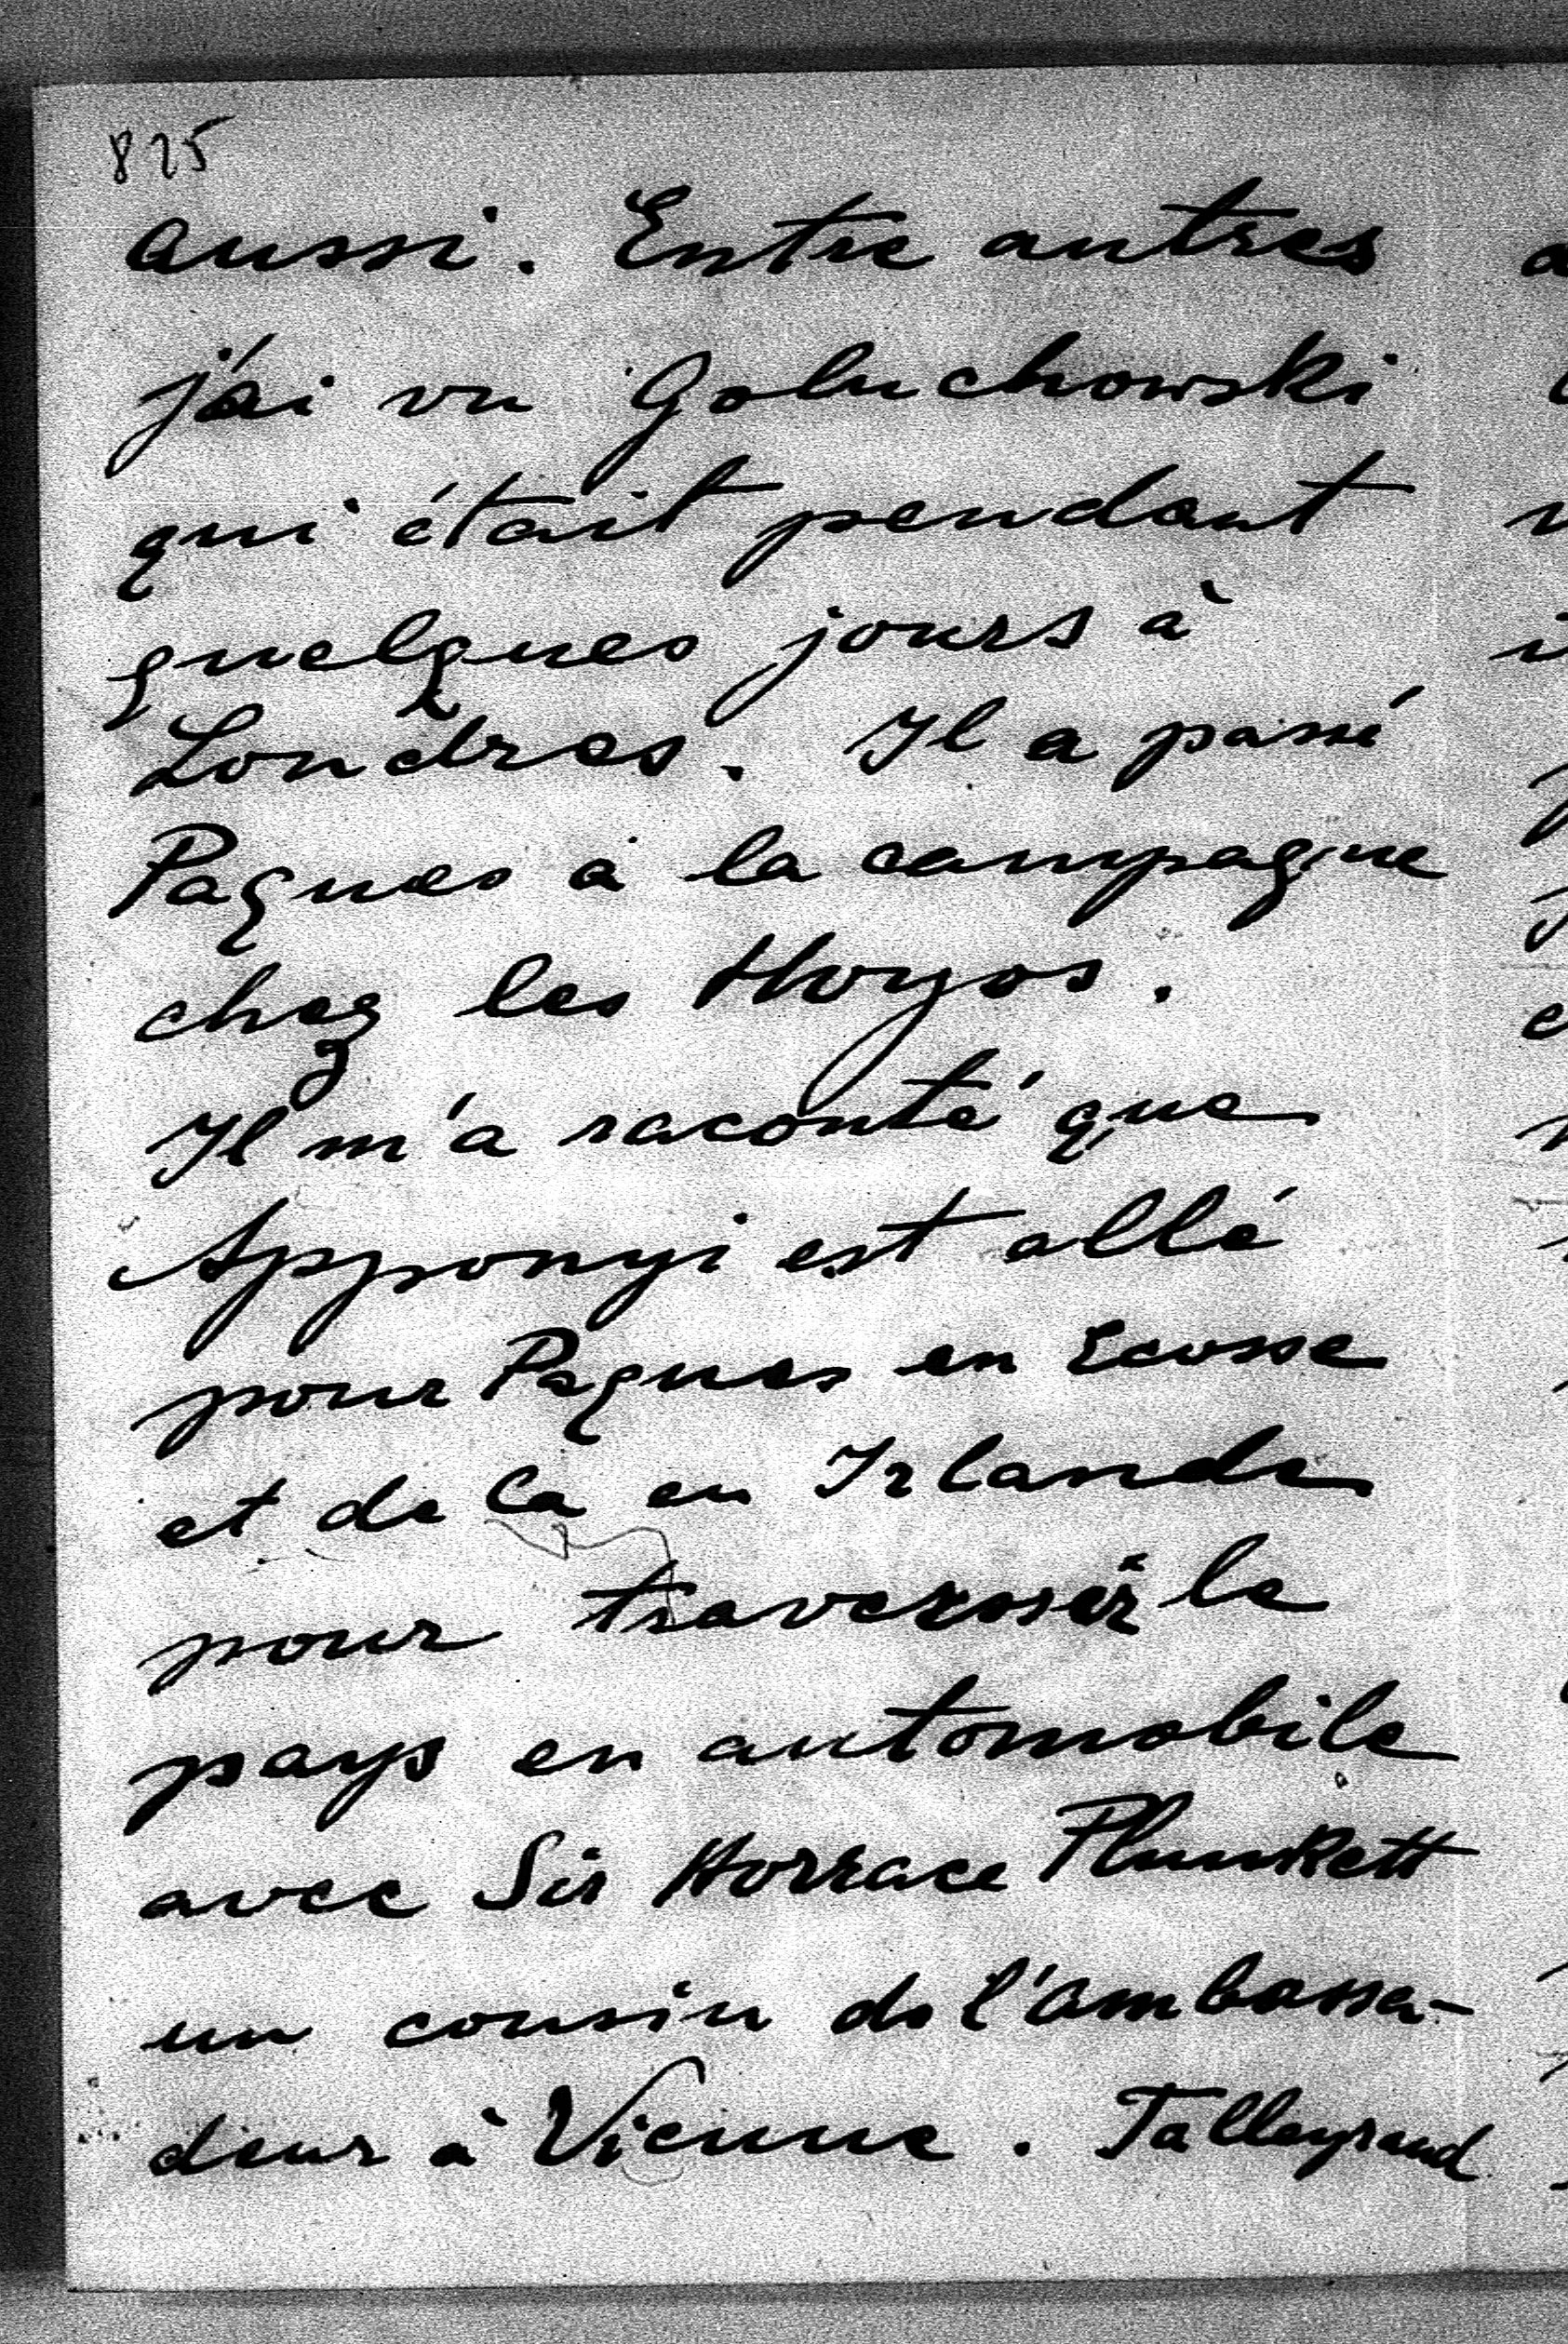 825
aussi. Entre autres
j'ai vu Goluchowski
qui était pendant
quelques jours à
Londres. Il a passé
Paques à la campagne
chez les Hoyos.
Il m'a raconté que
Apponyi est allé
pour Paques en Ecosse
et de la en Irlande
pour traversser le
pays en automobile
avec Sir Horrace Plunkett
un cousin de l'ambassa-
deur à Vienne. Talleyrand